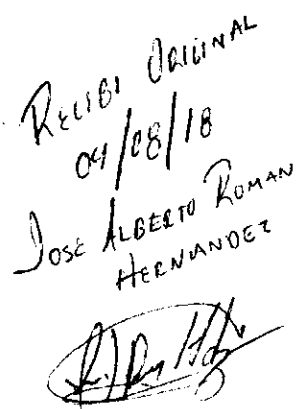 RECIBI ORIGINAL
04/08/18
JOSE ALBERTO ROMAN
HERNANDEZ